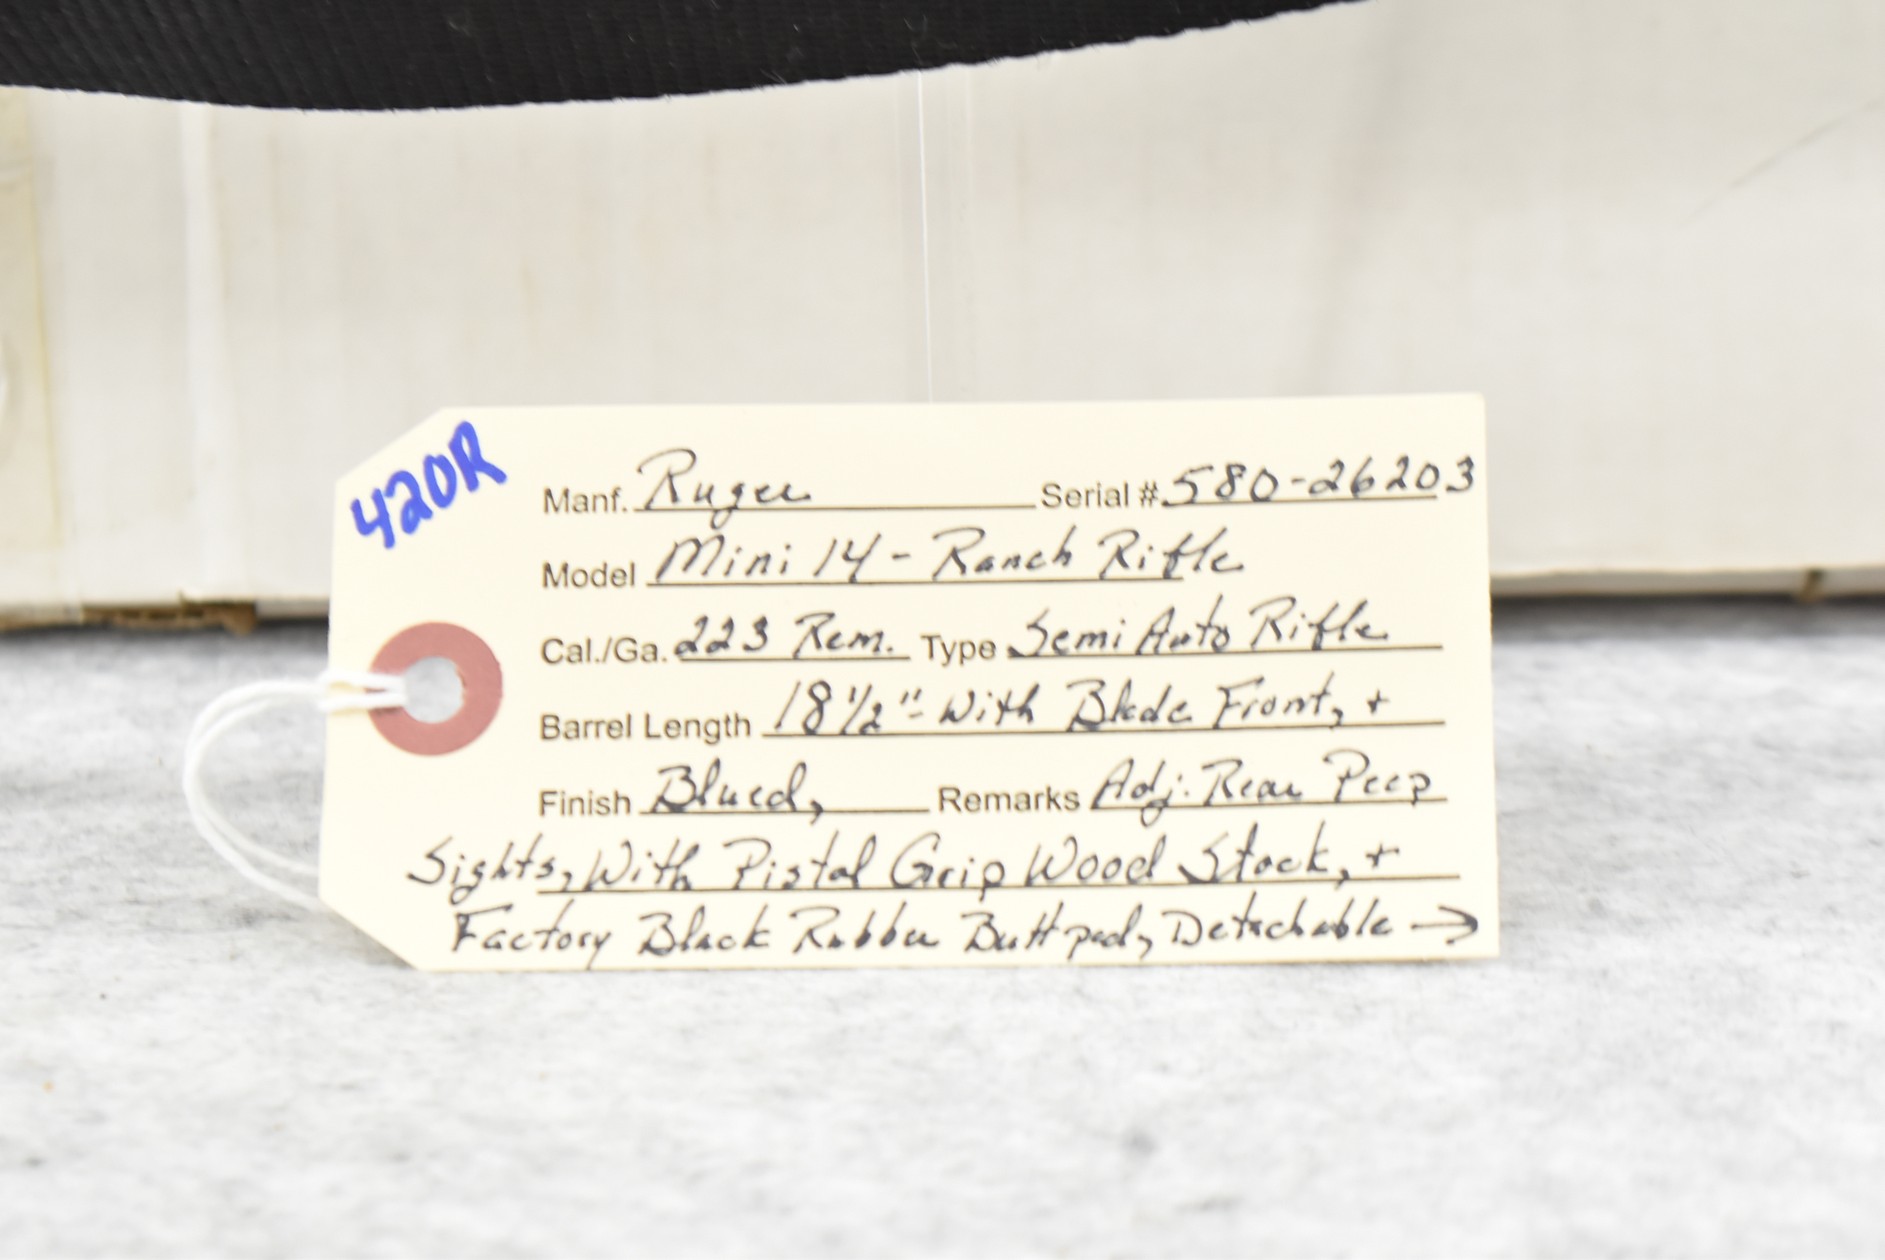 420R
Manf. Ruger Serial # 580-26203
Model Mini 14 - Ranch Rifle
Cal./Ga. 223 Rem. Type Semi Auto Rifle
Barrel Length 18 1/2" - With Blade Front, +
Finish Blued, Remarks Adj. Rear Peep
Sights, With Pistol Grip Wood Stock, +
Factory Black Rubber Butt pad, Detachable →